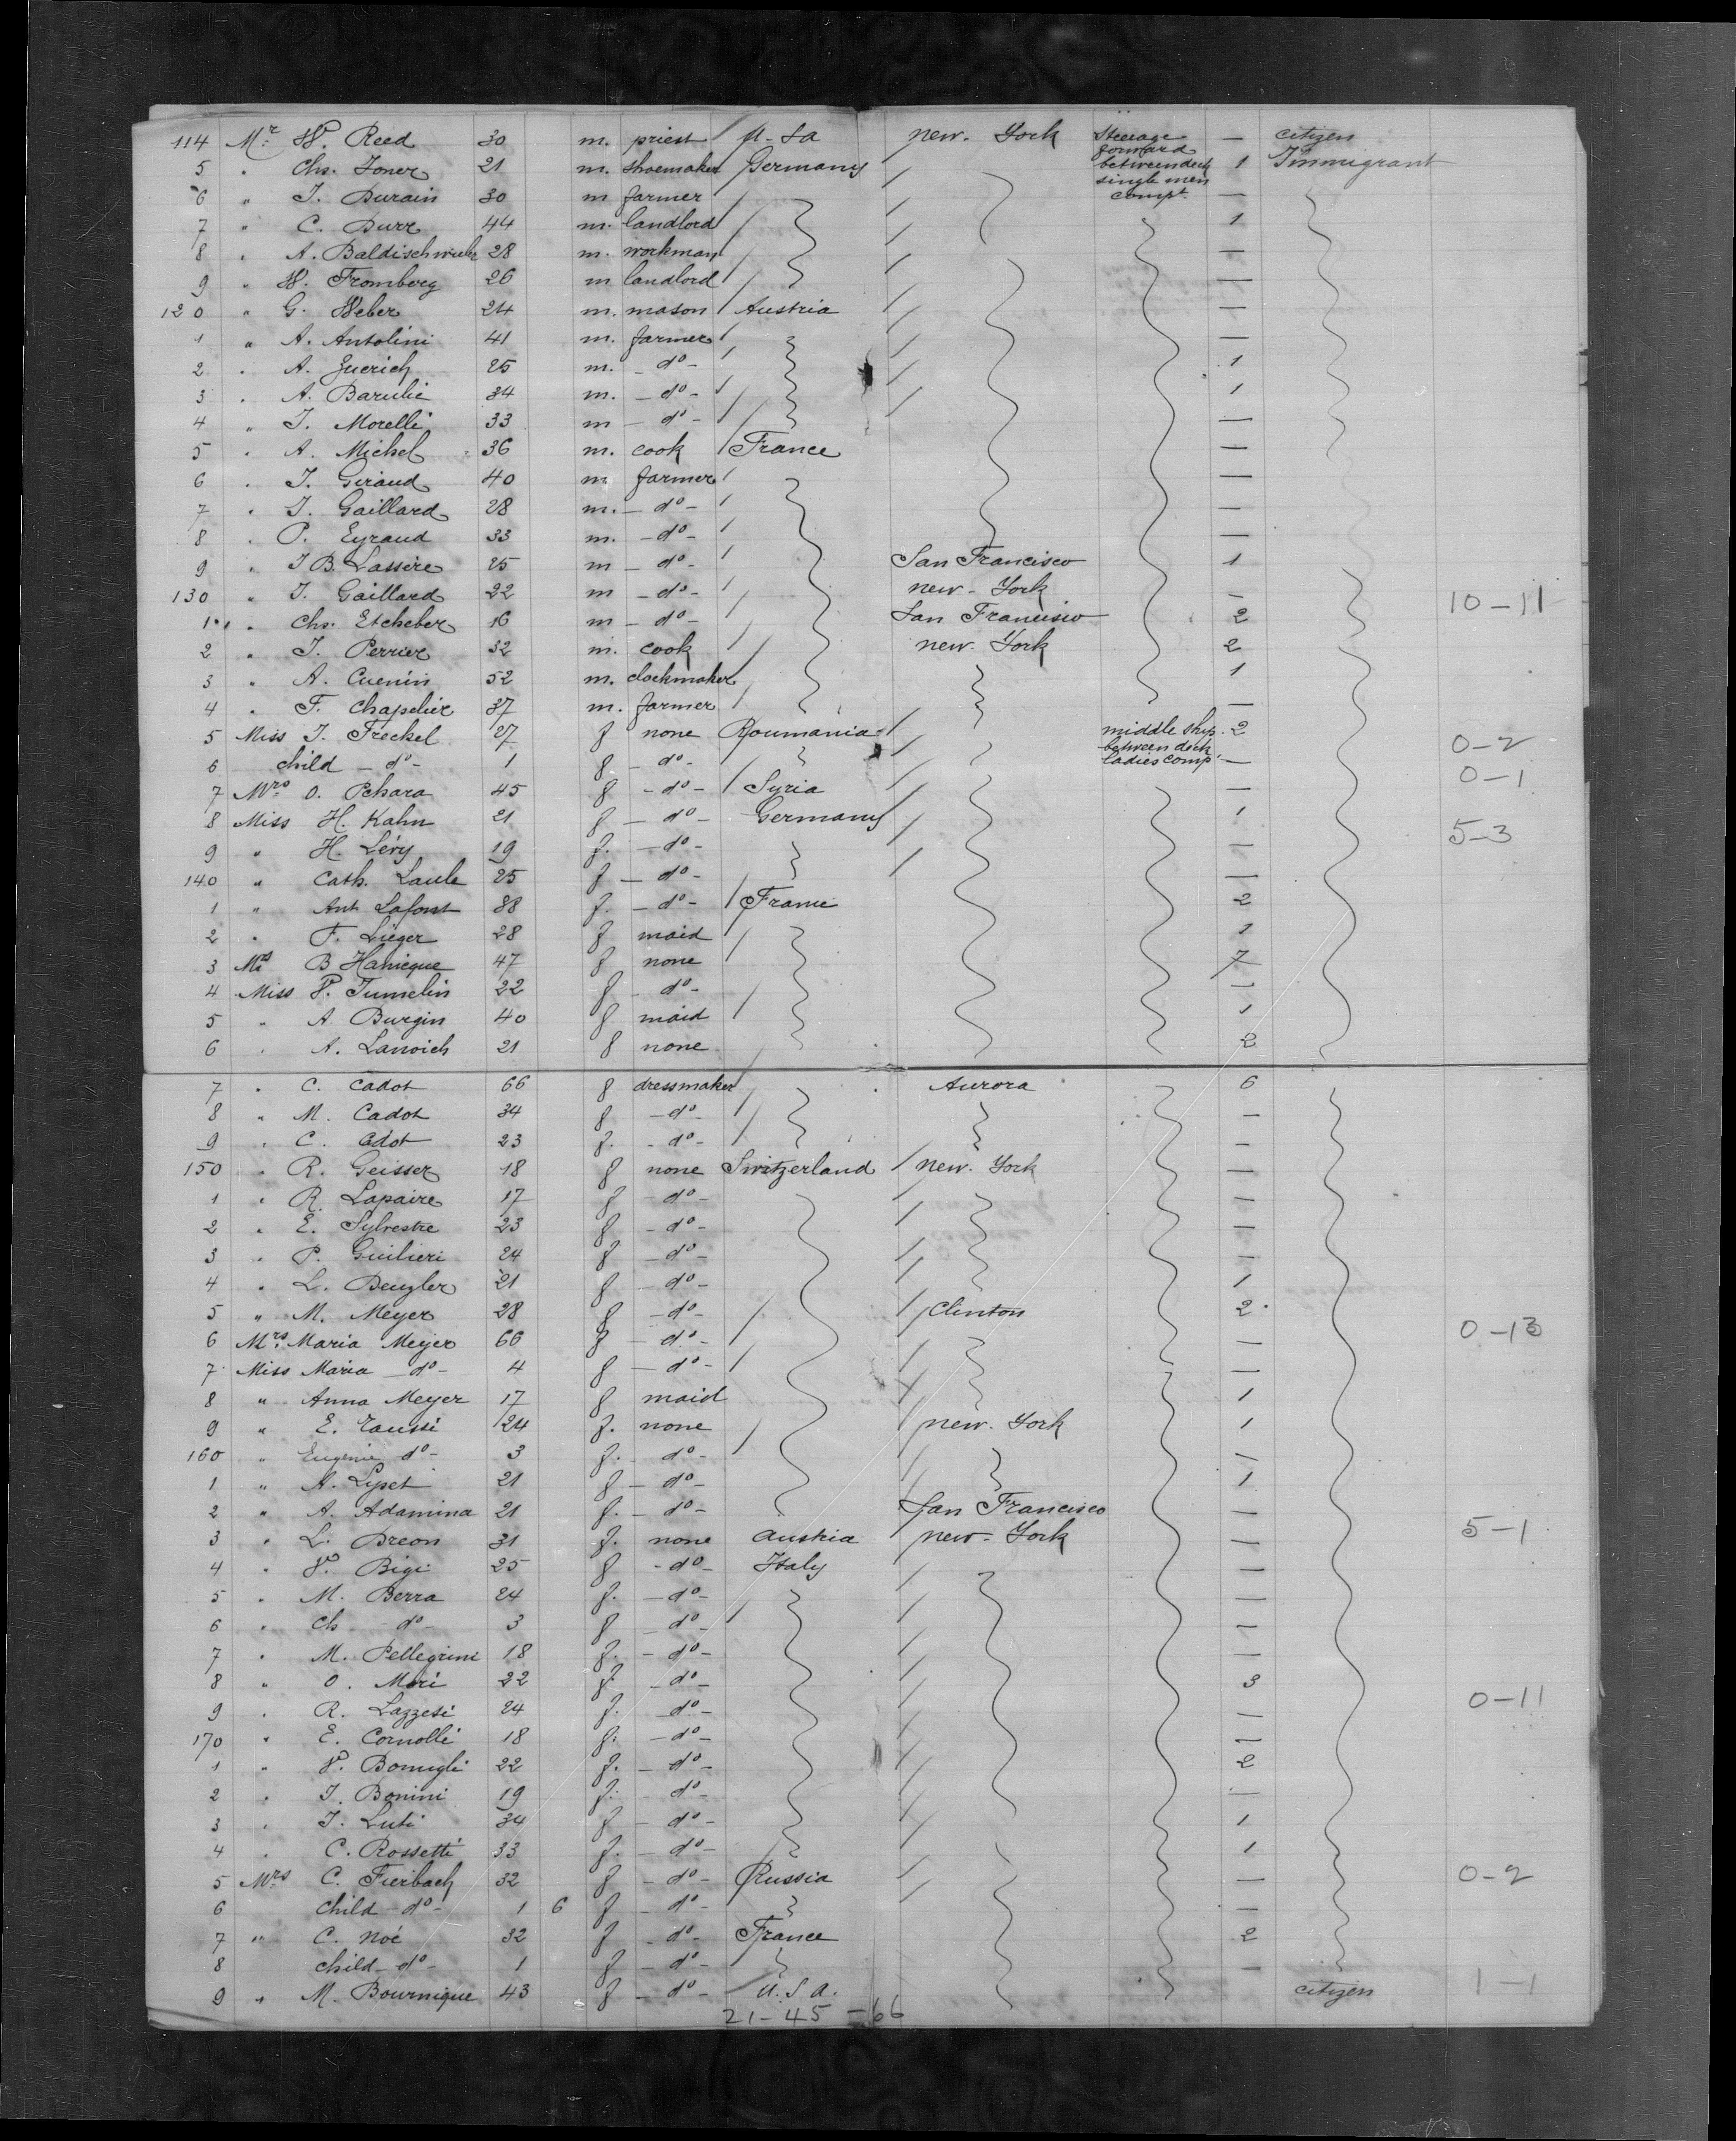 114 Mr. W. Reed 30 m. priest U-Sa new-York Steerage forward between deck single men compt. — citizen
5 " Chs. Joner 21 m. shoemaker Germany 1 Immigrant
6 " J. Durain 30 m farmer —
7 " C. Durr 44 m. landlord 1
8 " A. Baldischwieler 28 m. workman —
9 " W. Fromberg 26 m landlord —
120 " G. Weber 24 m. mason Austria —
1 " A. Antolini 41 m. farmer —
2 " A. Zuerich 25 m. - do - 1
3 " A. Barulic 34 m. - do - 1
4 " J. Morelli 33 m - do - —
5 " A. Michel 36 m. cook France —
6 " J. Giraud 40 m farmer —
7 " J. Gaillard 28 m. - do - —
8 " P. Eyraud 33 m. - do - —
9 " J B. Lassere 25 m - do - San Francisco 1
130 " J. Gaillard 22 m - do - new-York — 10-11
1 " Chs. Etcheber 16 m - do - San Francisco 2
2 " J. Perrier 32 m. cook new-York 2
3 " A. Cuenin 52 m. clockmaker 1
4 " F. Chapelier 37 m. farmer —
5 Miss J. Freckel 27 f none Roumania middle ship between deck ladies comp. 2 0-2
6 child - do - 1 f - do - — 0-1
7 Mrs. O. Pchara 45 f - do - Syria —
8 Miss H. Kahn 21 f - do - Germany 1 5-3
9 " H. Lévy 19 f. - do - —
140 " Cath. Laule 25 f - do - —
1 " Ant. Lafont 38 f. - do - France 2
2 " F. Lieger 28 f maid 1
3 Mrs B Hanicque 47 f none 7
4 Miss V. Jumelin 22 f - do - —
5 " A Burgin 40 f maid 1
6 " A. Lanoich 21 f none 2
7 " C. Cadot 66 f dressmaker Aurora 6
8 " M. Cadot 34 f - do - —
9 " C. Cadot 23 f. - do - —
150 " R. Geisser 18 f none Switzerland new-York —
1 " R. Lapaire 17 f - do - —
2 " E. Sylvestre 23 f - do - —
3 " P. Guilieri 24 f - do - —
4 " L. Deuzler 21 f - do - 1
5 " M. Meyer 28 f - do - Clinton 2
6 Mrs. Maria Meyer 66 f - do - — 0-13
7 Miss Maria - do - 4 f - do - —
8 " Anna Meyer 17 f maid 1
9 " E. Taussi 24 f. none new-York 1
160 " Eugenie do - 3 f. - do - —
1 " A. Lyset 21 f - do - 1
2 " A. Adamina 21 f. - do - San Francisco —
3 " L. Dreon 31 f. none Austria new-York — 5-1
4 " V. Bigi 25 f - do - Italy —
5 " M. Berra 24 f. - do - —
6 " Ch - do - 3 f - do - —
7 " M. Pellegrini 18 f. - do - —
8 " O. Mori 22 f. - do - 3
9 " R. Lazzesi 24 f. - do - — 0-11
170 " E. Cornolli 18 f. - do - —
1 " V. Bomigli 22 f. - do - 2
2 " J. Bonini 19 f. - do - —
3 " J. Luti 34 f - do - 1
4 " C. Rossetti 33 f. - do - 1
5 Mrs C. Fierbach 32 f - do - Russia — 0-2
6 child - do - 1 6 f - do - —
7 " C. Noé 32 f - do - France 2
8 child - do - 1 f - do - —
9 " M. Bournique 43 f - do - U.S.A. citizen 1-1
21-45-66